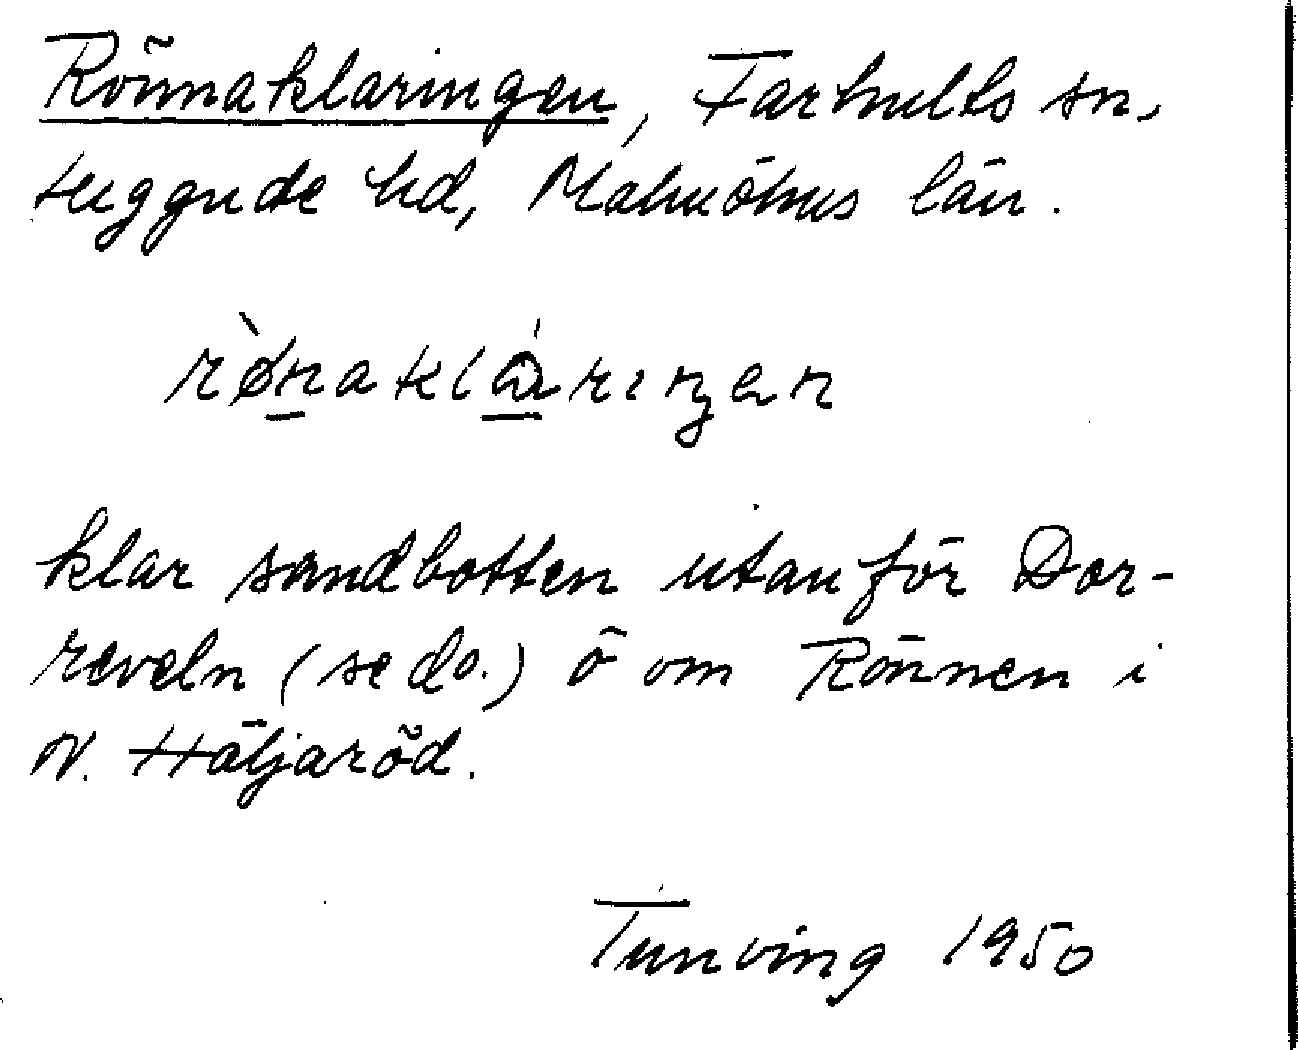 Rönnaklaringen, Farhults sn,
Luggude hd, Malmöhus län.
rø̀naklá̱riŋen
klar sandbotten utanför Dor-
reveln (se do.) ö om Rönnen i
N. Häljaröd.
Tunving 1950